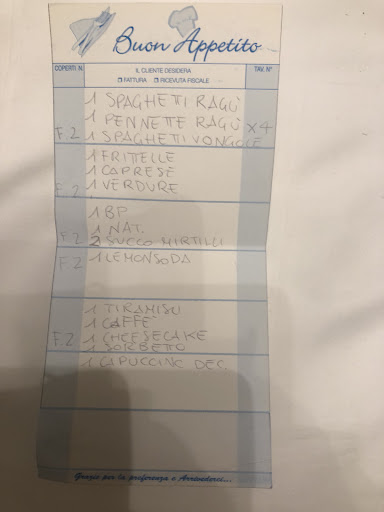 Buon Appetito
COPERTI N.
IL CLIENTE DESIDERA
TAV. N°
FATTURA RICEVUTA FISCALE
1 SPAGHETTI RAGÙ
1 PENNETTE RAGÙ x4
F.2 1 SPAGHETTI VONGOLE
1 FRITTELLE
1 CAPRESE
F.2 1 VERDURE
1 BP
1 NAT.
F.2 2 SUCCO MIRTILLI
F.2 1 LEMONSODA
1 TIRAMISU
1 CAFFÈ
F.2 1 CHEESECAKE
1 SORBETTO
1 CAPUCCINO DEC.
Grazie per la preferenza e Arrivederci...